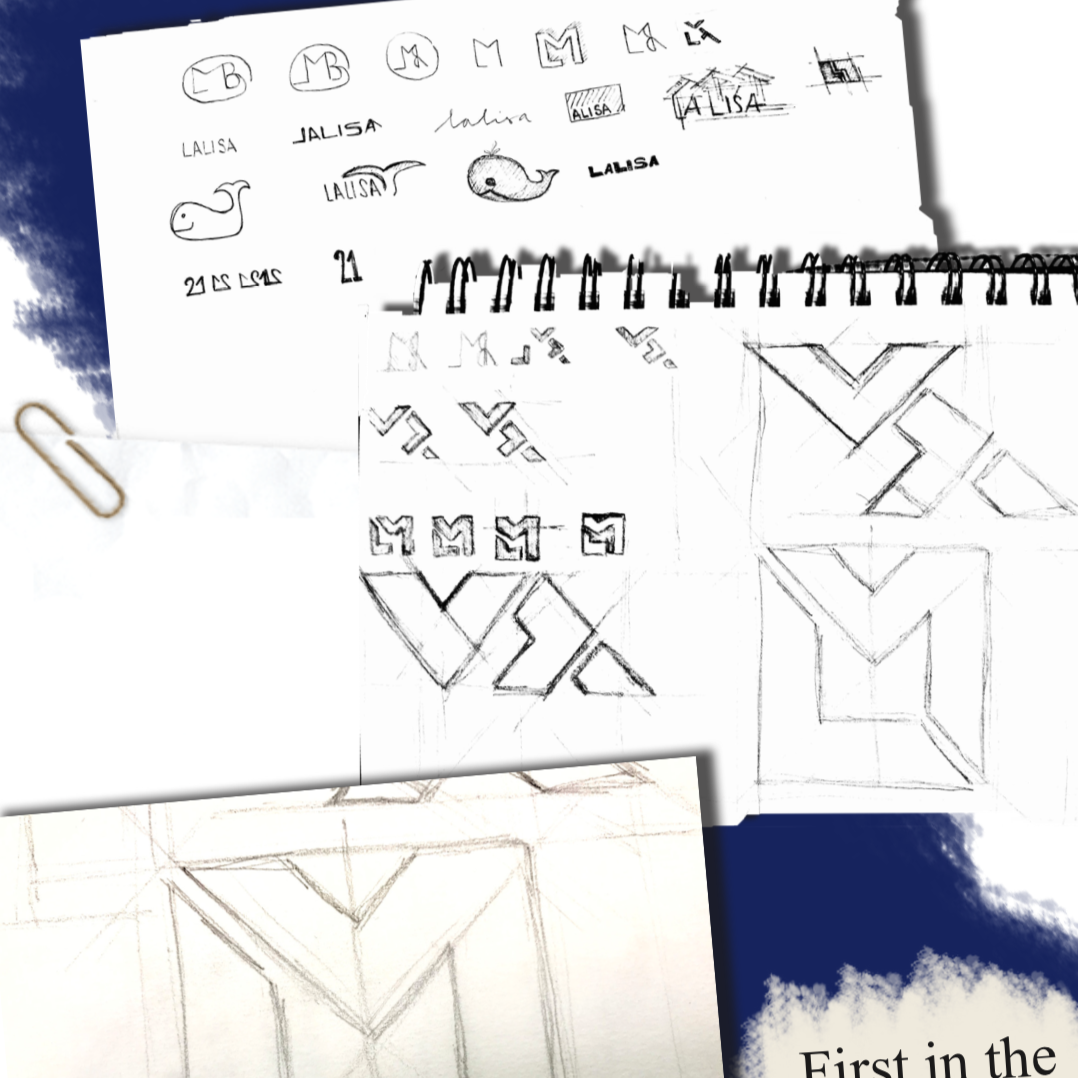 MB MB M M LM LX
LALISA JALISA lalisa ALISA LALISA
LALISA LALISA
21 LS LS1S 21
First in the